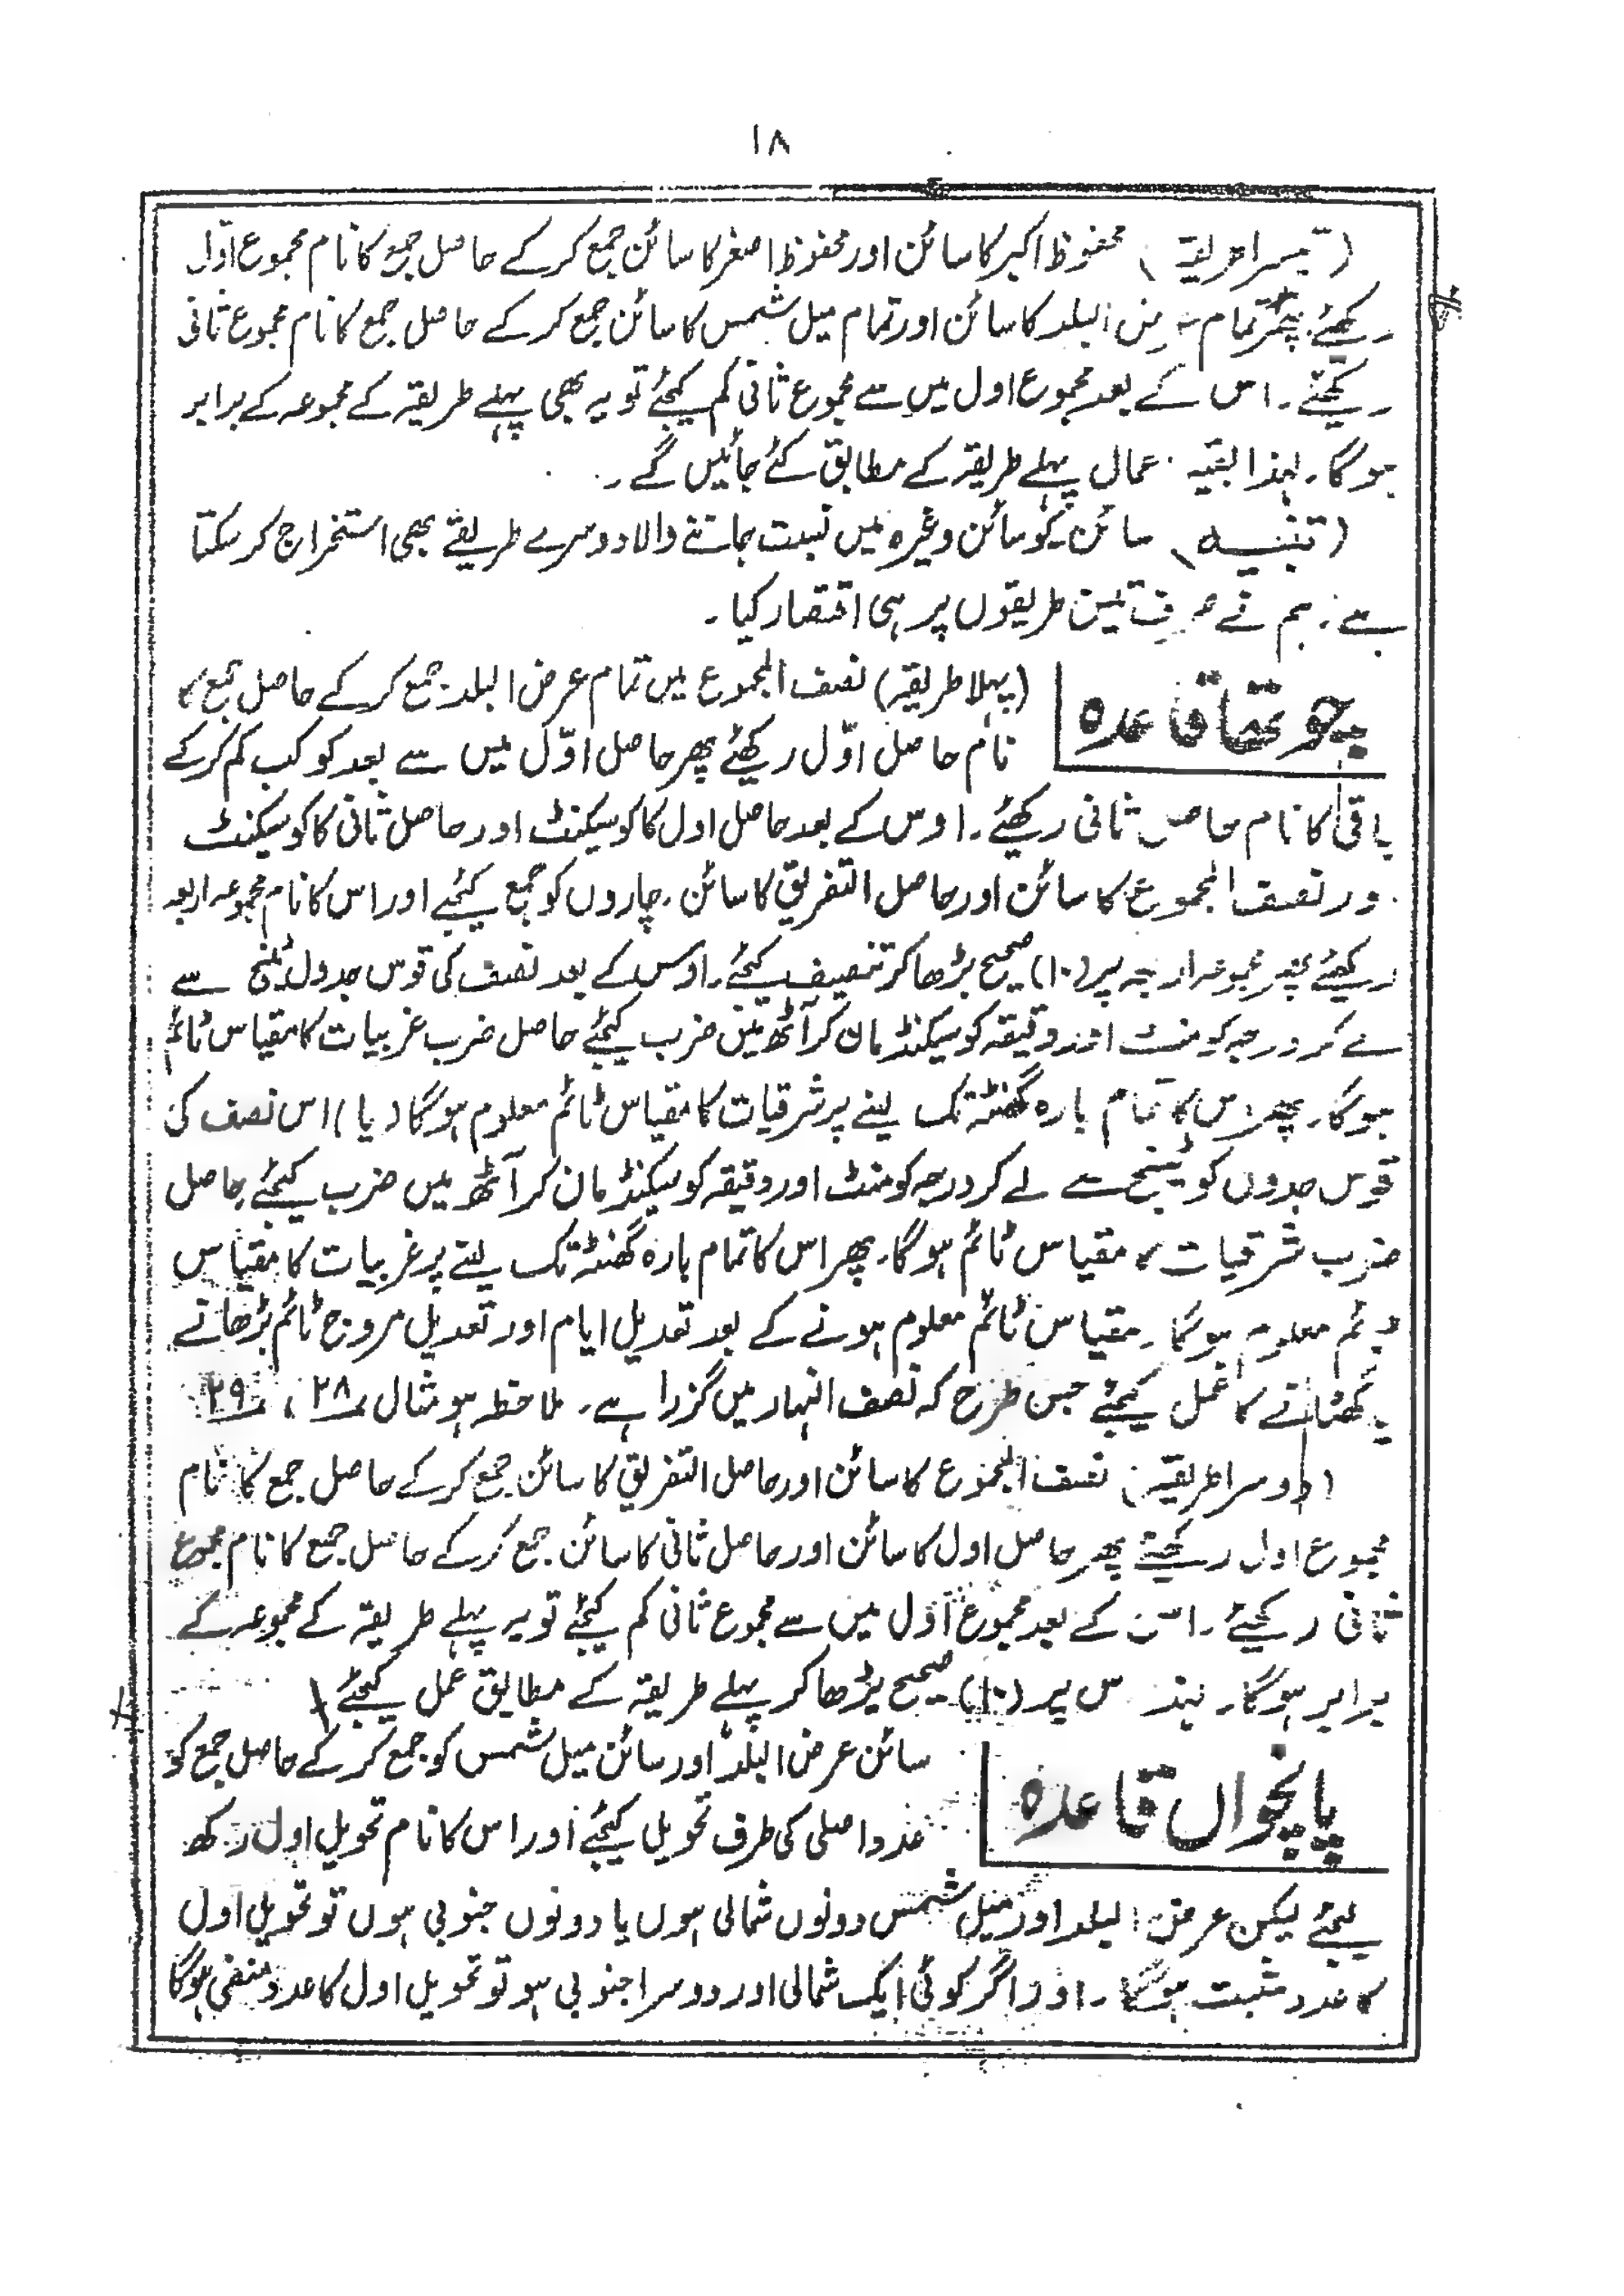 ۱۸
(تیسرا طریقہ) محفوظ اکبر کا سائن اور محفوظ اصغر کا سائن جمع کر کے حاصل جمع کا نام مجموع اوّل
رکھئے پھر تمام عرض البلد کا سائن اور تمام میل شمس کا سائن جمع کر کے حاصل جمع کا نام مجموع ثانی
رکھئے۔ اس کے بعد مجموع اول میں سے مجموع ثانی کم کیجئے تو یہ بھی پہلے طریقہ کے مجموعہ کے برابر
ہوگا۔ لہذا بقیہ اعمال پہلے طریقہ کے مطابق کئے جائیں گے۔
(تنبیہ) سائن کو سائن وغیرہ میں نسبت جاننے والا دوسرے طریقے بھی استخراج کر سکتا
ہے۔ ہم نے صرف تین طریقوں پر ہی اقتصار کیا۔
چوتھا قاعدہ
(پہلا طریقہ) نصف المجموع میں تمام عرض البلد جمع کر کے حاصل جمع کا
نام حاصل اوّل رکھئے پھر حاصل اوّل میں سے بعد کوکب کم کر کے
باقی کا نام حاصل ثانی رکھئے۔ اوس کے بعد حاصل اول کا کوسیکنٹ اور حاصل ثانی کا کوسیکنٹ
اور نصف المجموع کا سائن اور حاصل التفریق کا سائن، چاروں کو جمع کیجئے اور اس کا نام مجموعہ اربعہ
رکھئے پھر مجموعہ اربعہ پر (۱۰) صحیح بڑھا کر تنصیف کیجئے۔ اوس کے بعد نصف کی قوس جدول ٹینج سے
لے کر درجہ کو منٹ اور دقیقہ کو سیکنڈ مان کر آٹھ میں ضرب کیجئے حاصل ضرب غربیات کا مقیاس ٹائم
ہوگا۔ پھر اس کا تمام بارہ گھنٹہ تک لینے پر شرقیات کا مقیاس ٹائم معلوم ہوگا (یا) اس نصف کی
قوس جدول کوٹینج سے لے کر درجہ کو منٹ اور دقیقہ کو سیکنڈ مان کر آٹھ میں ضرب کیجئے حاصل
ضرب شرقیات کا مقیاس ٹائم ہوگا۔ پھر اس کا تمام بارہ گھنٹہ تک لینے پر غربیات کا مقیاس
ٹائم معلوم ہوگا۔ مقیاس ٹائم معلوم ہونے کے بعد تعدیل ایام اور تعدیل مروج ٹائم بڑھانے
یا گھٹانے کا عمل کیجئے جس طرح کہ نصف النہار میں گزرا ہے۔ ملاحظہ ہو مثال ۲۸، ۲۹
(دوسرا طریقہ) نصف المجموع کا سائن اور حاصل التفریق کا سائن جمع کر کے حاصل جمع کا نام
مجموع اول رکھئے پھر حاصل اول کا سائن اور حاصل ثانی کا سائن جمع کر کے حاصل جمع کا نام مجموع
ثانی رکھئے۔ اس کے بعد مجموع اول میں سے مجموع ثانی کم کیجئے تو یہ پہلے طریقہ کے مجموعہ کے
برابر ہوگا۔ لہذا اس پر (۱۰) صحیح بڑھا کر پہلے طریقہ کے مطابق عمل کیجئے
پانچواں قاعدہ
سائن عرض البلد اور سائن میل شمس کو جمع کر کے حاصل جمع کو
عدد اصلی کی طرف تحویل کیجئے اور اس کا نام تحویل اول رکھ
لیجئے لیکن عرض البلد اور میل شمس دونوں شمالی ہوں یا دونوں جنوبی ہوں تو تحویل اول
کا عدد مثبت ہوگا۔ اور اگر کوئی ایک شمالی اور دوسرا جنوبی ہو تو تحویل اول کا عدد منفی ہوگا